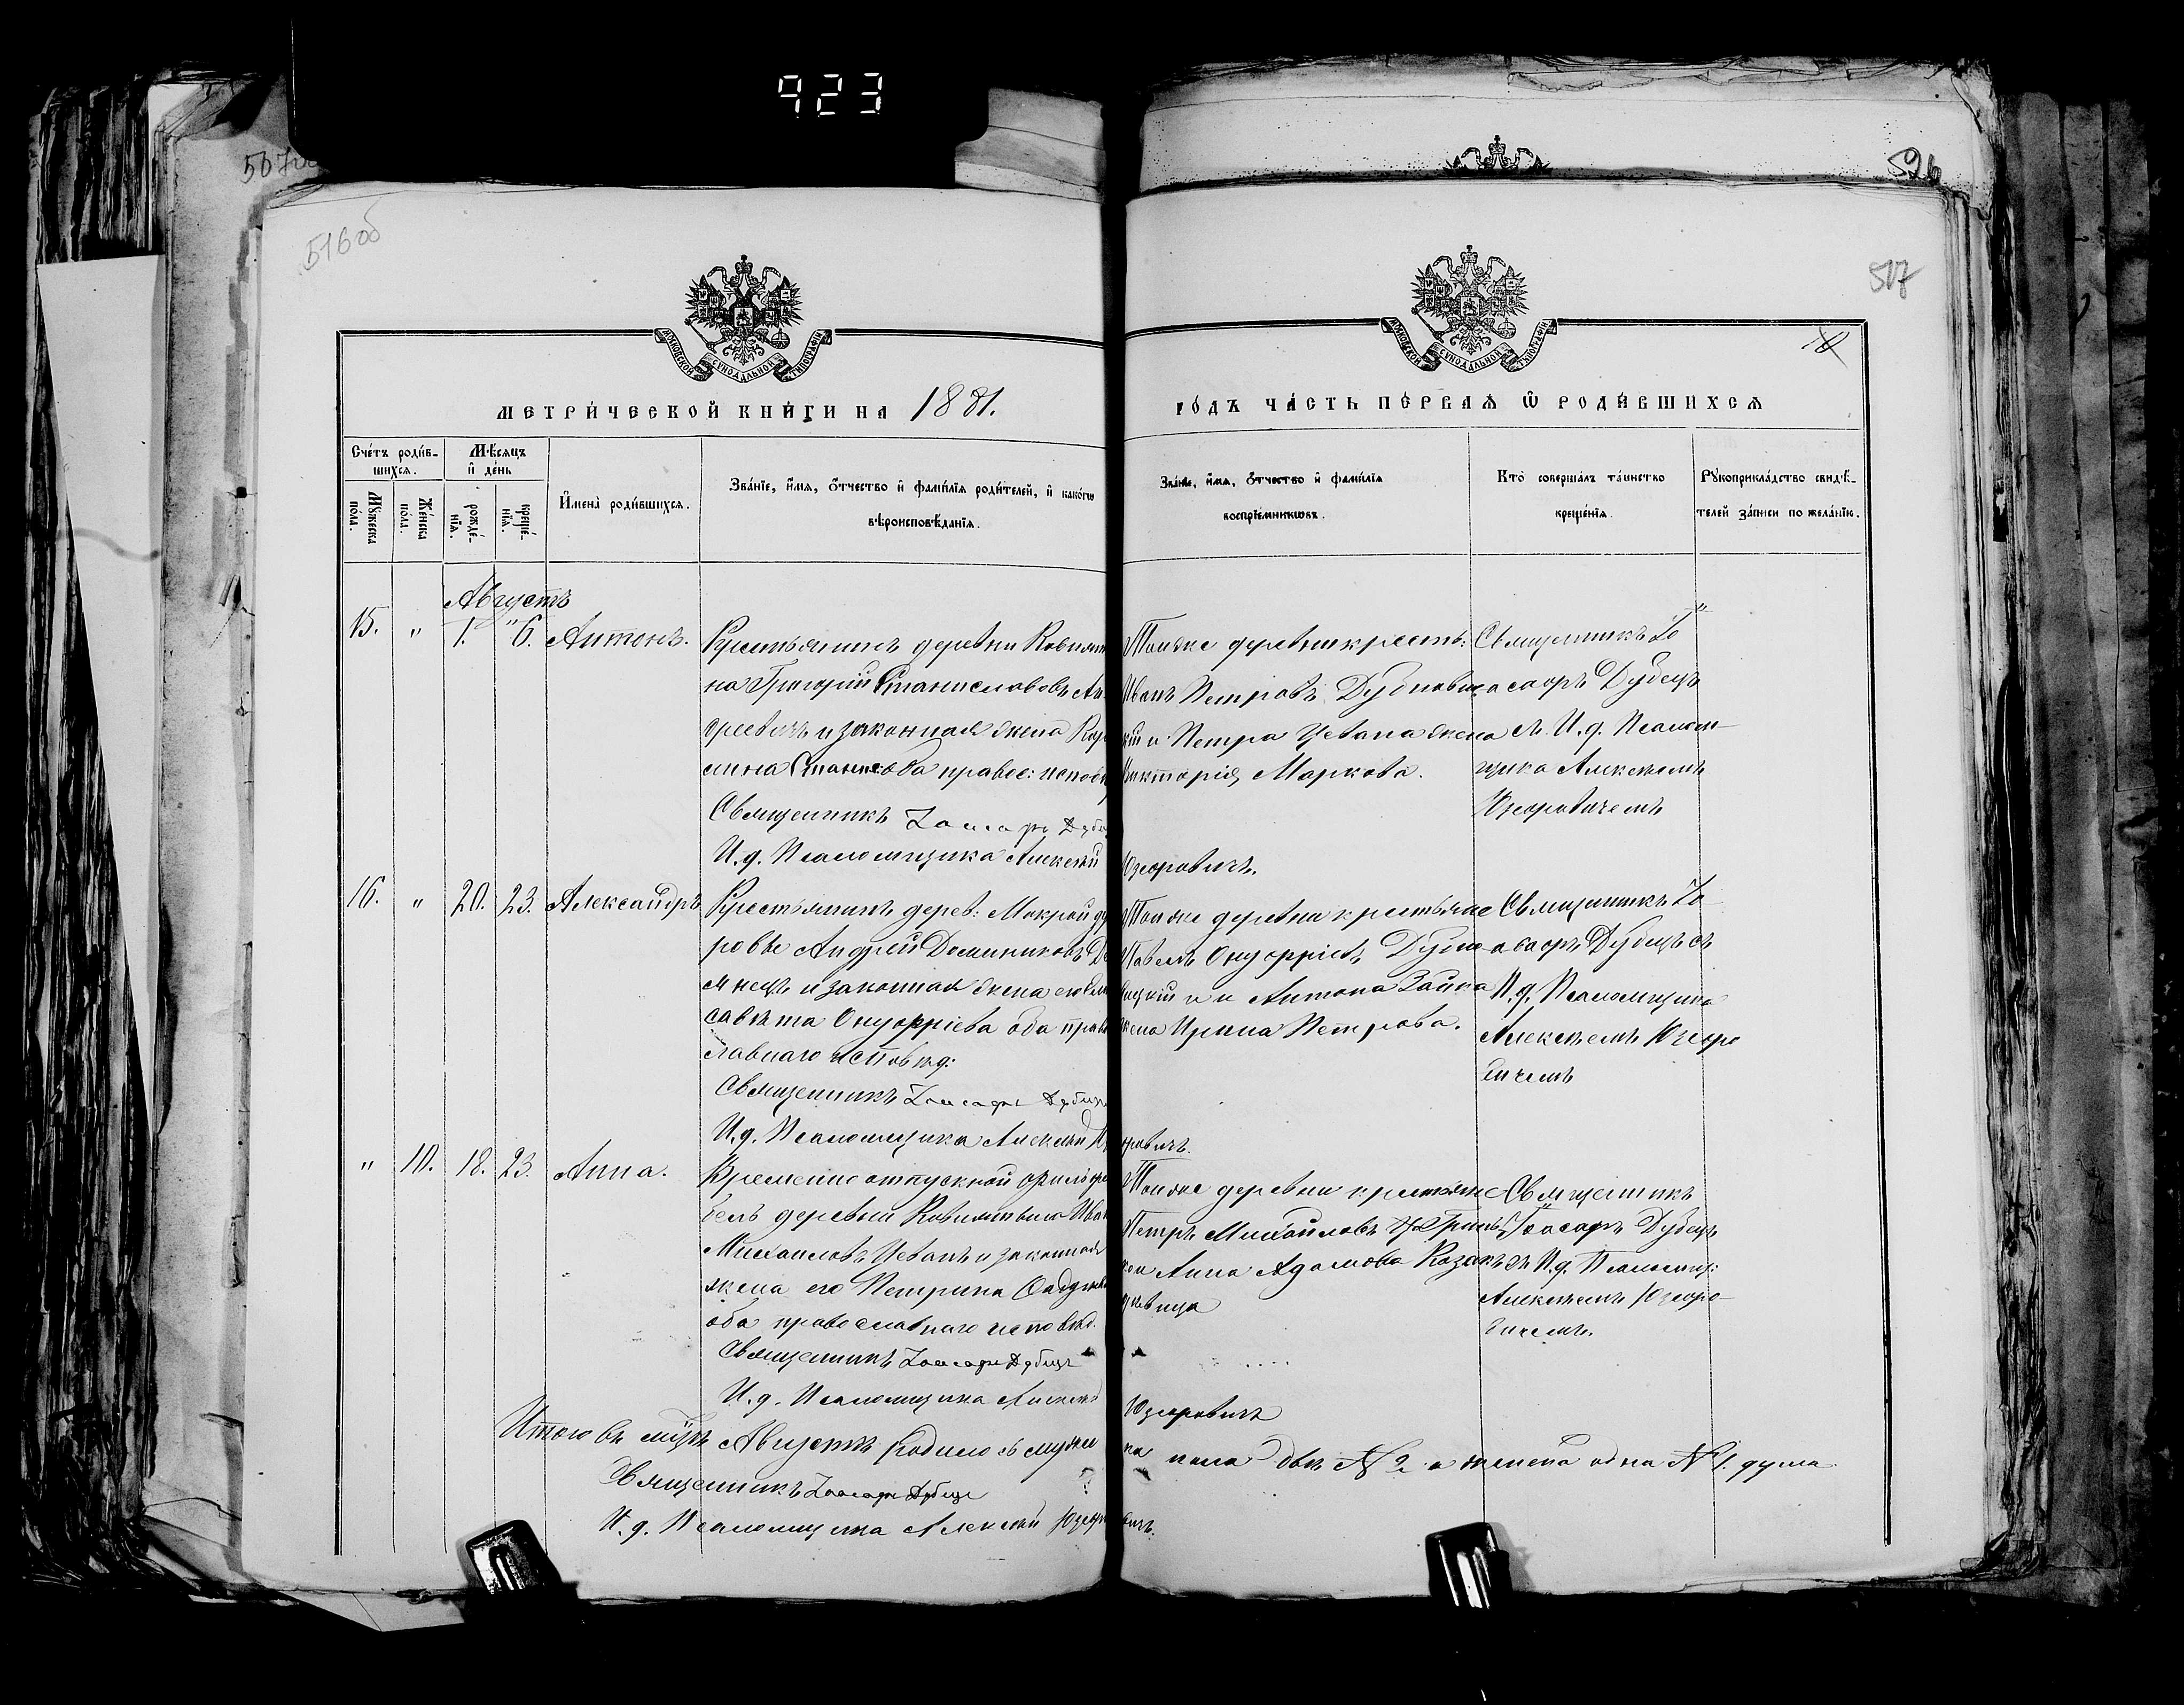 923
507
526
516об
517
МОСКОВСКОЙ СѴНОДАЛЬНОЙ ТИПОГРАФІИ
МОСКОВСКОЙ СѴНОДАЛЬНОЙ ТИПОГРАФІИ
МЕТРИ́ЧЕСКОЙ КНИ́ГИ НА 1881.
ГО́ДЪ ЧА́СТЬ ПЕ́РВАѦ Ѿ РОДИ́ВШИХСѦ
Сче́тъ роди́в-
шихсѧ.
Мѣ́сѧцъ
и҆ де́нь
Мꙋ́жеска
по́ла.
Же́нска
по́ла.
рожде́-
нїѧ.
креще́-
нїѧ.
И҆мена̀ роди́вшихсѧ.
Зва́нїе, и҆́мѧ, ѻ҆́тчество и҆ фамѝлїѧ роди́телей, и҆ како́гѡ
вѣроисповѣ́данїѧ.
Зва́нїе, и҆́мѧ, ѻ҆́тчество и҆ фамѝлїѧ
воспрїе́мникѡвъ.
Кто̀ соверша́лъ та́инство
креще́нїѧ.
Рꙋкоприкла́дство свидѣ́-
телей за́писи по жела́нїю.
Августъ
15. " 1. 6. Антонъ.
Крестьянинъ деревни
на Григорій Станиславовъ
и законная жена
православ: исповѣ
Священникъ Іоасафъ Дубец
И. д. Псаломщика Алексѣй Юзефовичъ.
Тойже деревни крестьян:
Иванъ Петровъ
и Петра Цевана жена
Викторія Маркова.
Священникъ Іо
асафъ Дубецъ
съ И. д. Псаломщика
щика Алексѣемъ
Юзефовичемъ
16. " 20. 23. Александръ
Крестьянинъ дерев: Мокрой ду
ровы Андрей Доминиковъ
и законная жена его Ели
савета Онуфріева оба право
славнаго исповѣд:
Священникъ Іоасафъ Дубецъ
И. д. Псаломщика Алексѣй Юзефовичъ.
Тойже деревни крестьяне
Павелъ Онуфріевъ
и Антона Зайка
жена Ирина Петрова.
Священникъ Іо
асафъ Дубецъ съ
И. д. Псаломщика
Алексѣемъ Юзефо
вичемъ
" 10. 18. 23. Анна.
Временно отпускной фельдфе
бель деревни Иван
Михаиловъ Цеванъ и законная
жена его Петрина
оба православнаго исповѣд.
Священникъ Іоасафъ Дубецъ
И. д. Псаломщика Алексѣй Юзефовичъ
Тойже деревни крестьяне
Петръ Михайловъ
Анна Адамова Казакъ
девица
Священникъ
Іоасафъ Дубецъ
съ И. д. Псаломщ:
Алексѣемъ Юзефо-
вичемъ.
Итого въ Августѣ родилось мужеска пола двѣ № 2 а женска одна № 1. душа
Священникъ Іоасафъ Дубецъ
И. д. Псаломщика Алексѣй Юзефовичъ.